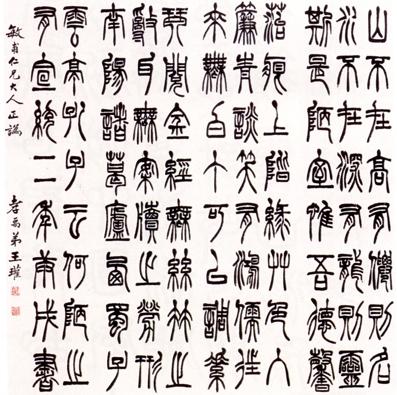 山不在高有僊則名
水不在深有龍則靈
斯是陋室惟吾德馨
苔痕上階緣艸色入
簾青談笑有鴻儒往
來無白丁可以調素
琴閱金經無絲竹之
亂耳無案牘之勞形
南陽諸葛廬西蜀子
雲亭孔子云何陋之
有宣統二年庚戌書
敏甫仁兄大人正 孝禹弟王瓘